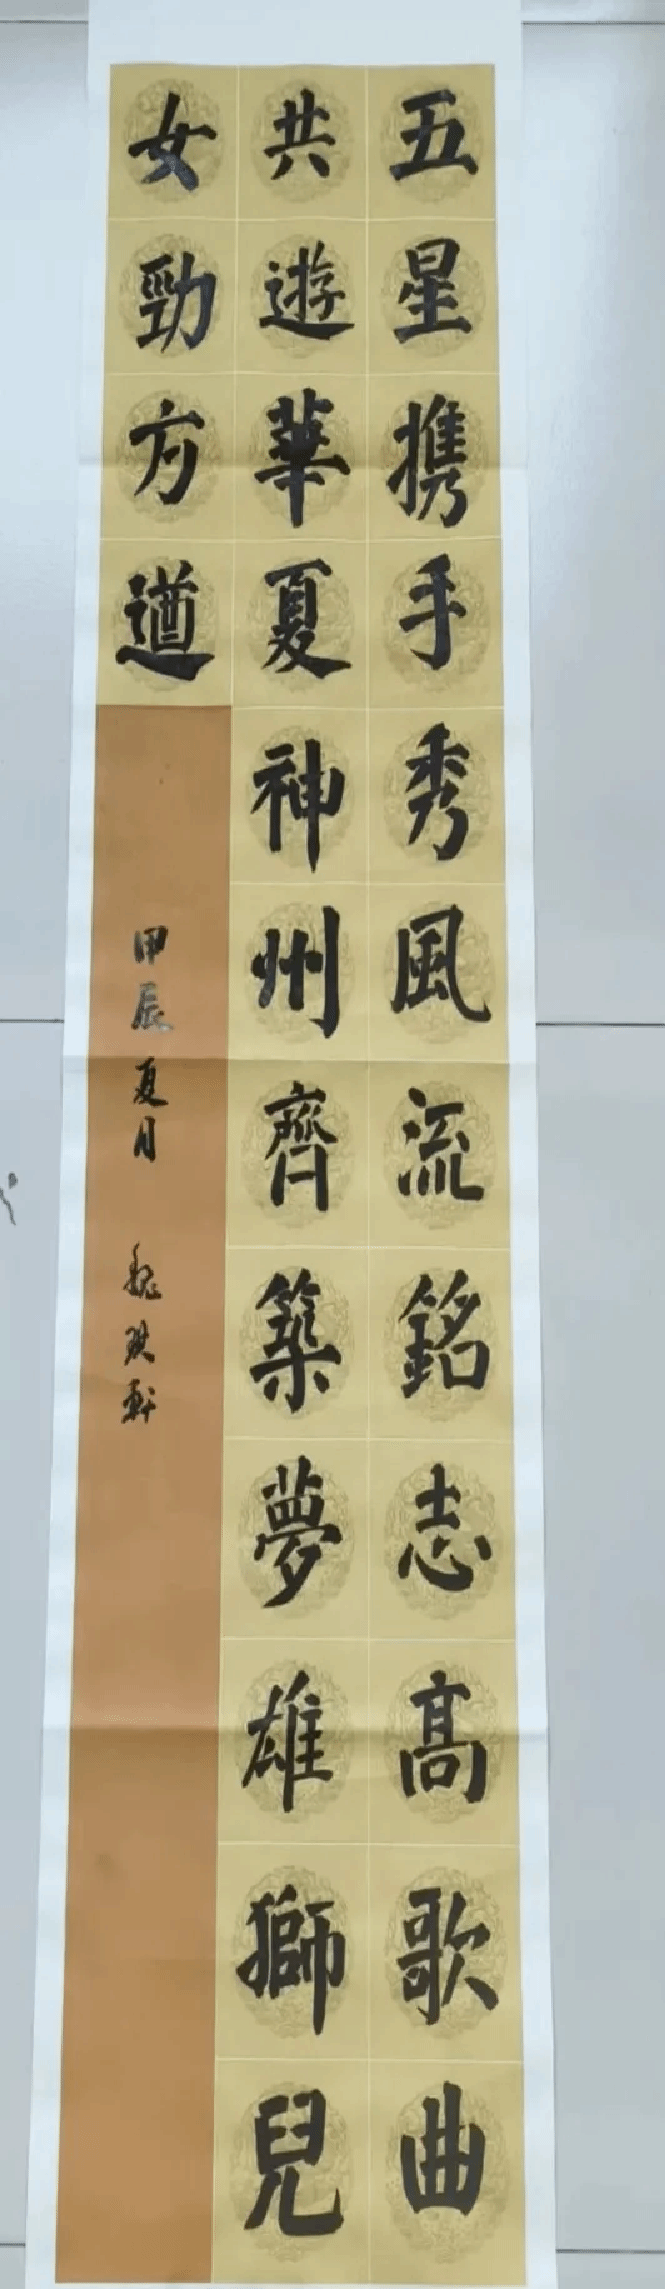 五星携手秀風流銘志高歌曲
共遊華夏神州齊築夢雄獅兒
女勁方遒
甲辰夏月
魏 軒